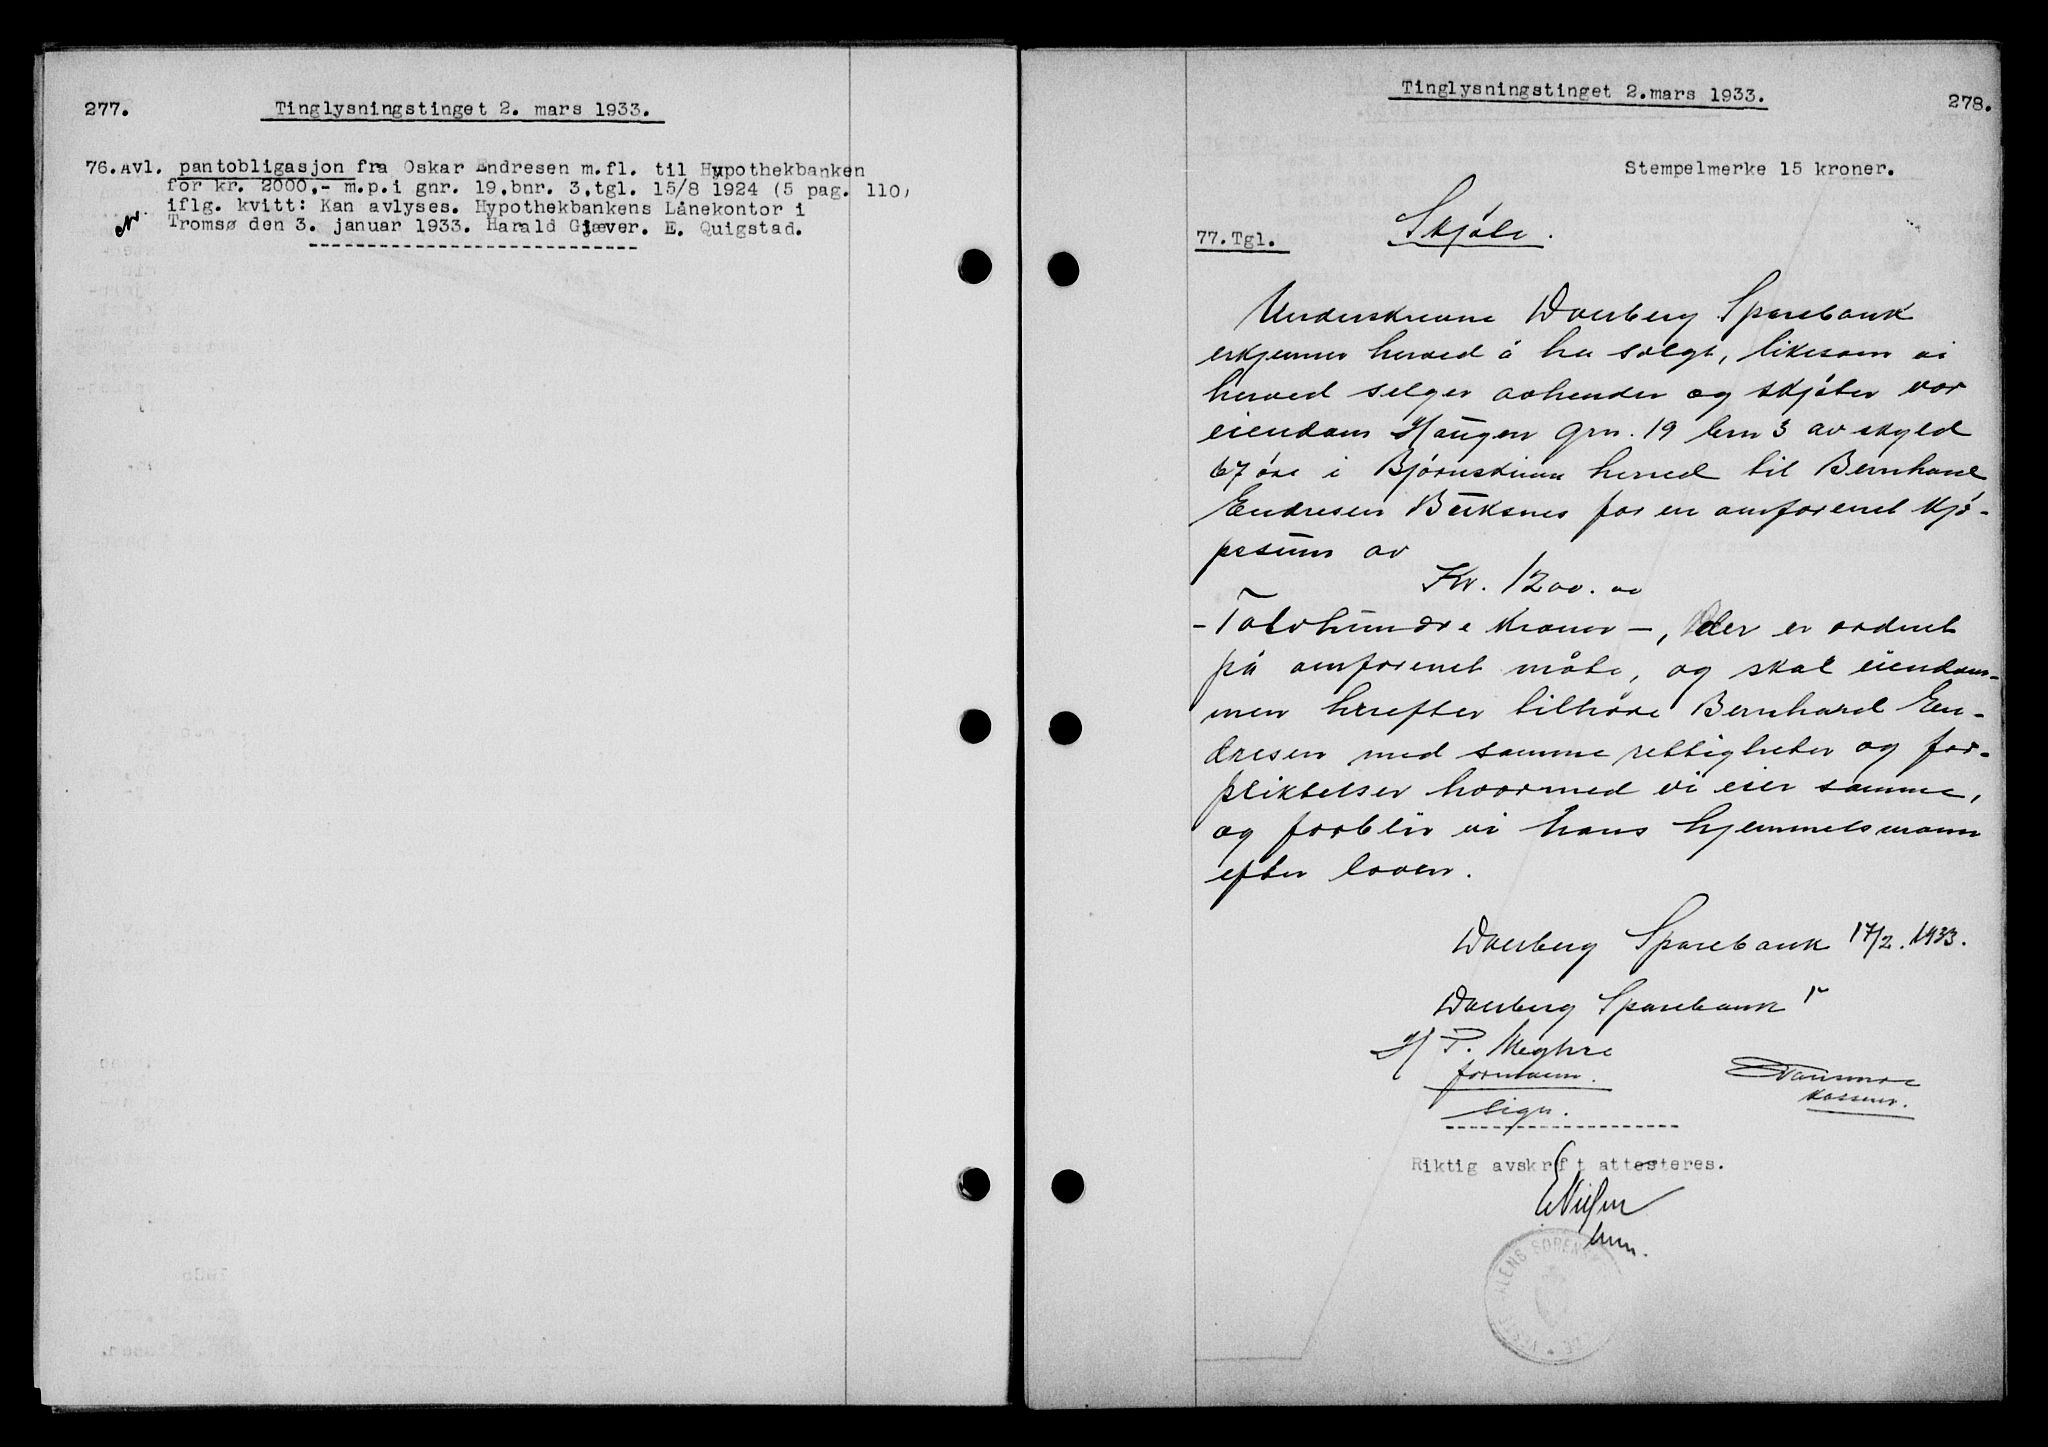 277.
Tinglysningstinget 2. mars 1933.
76. Avl. pantobligasjon fra Oskar Endresen m.fl. til Hypothekbanken
for kr. 2000,- m.p.i gnr. 19.bnr. 3.tgl. 15/8 1924 (5 pag. 110)
iflg. kvitt: Kan avlyses. Hypothekbankens Lånekontor i
Tromsø den 3. januar 1933. Harald Gjæver. E. Quigstad.
Tinglysningstinget 2.mars 1933.
278.
Stempelmerke 15 kroner.
77. Tgl.
Skjøte.
Underskrevne Dverberg Sparebank
erkjenner herved å ha solgt, likesom vi
herved selger avhender og skjøter vor
eiendom Haugen Grn. 19 brn 3 av skyld
67 øre i Bjørnskinn herred til Bernhard
Endresen Buksnes for en omforenet kjø-
pesum av
Kr. 1200.00
- Tolvhundre kroner -, der er ordnet
på omforenet måte, og skal eiendom-
men herefter tilhøre Bernhard En-
dresen med samme rettigheter og for-
pliktelser hvormed vi eier samme,
og forblir vi hans hjemmelsmann
efter loven.
Dverberg Sparebank 17/2. 1933.
Dverberg Sparebank
H P. Meyhre
formann.
kasserer.
sign.
Riktig avskrift attesteres.